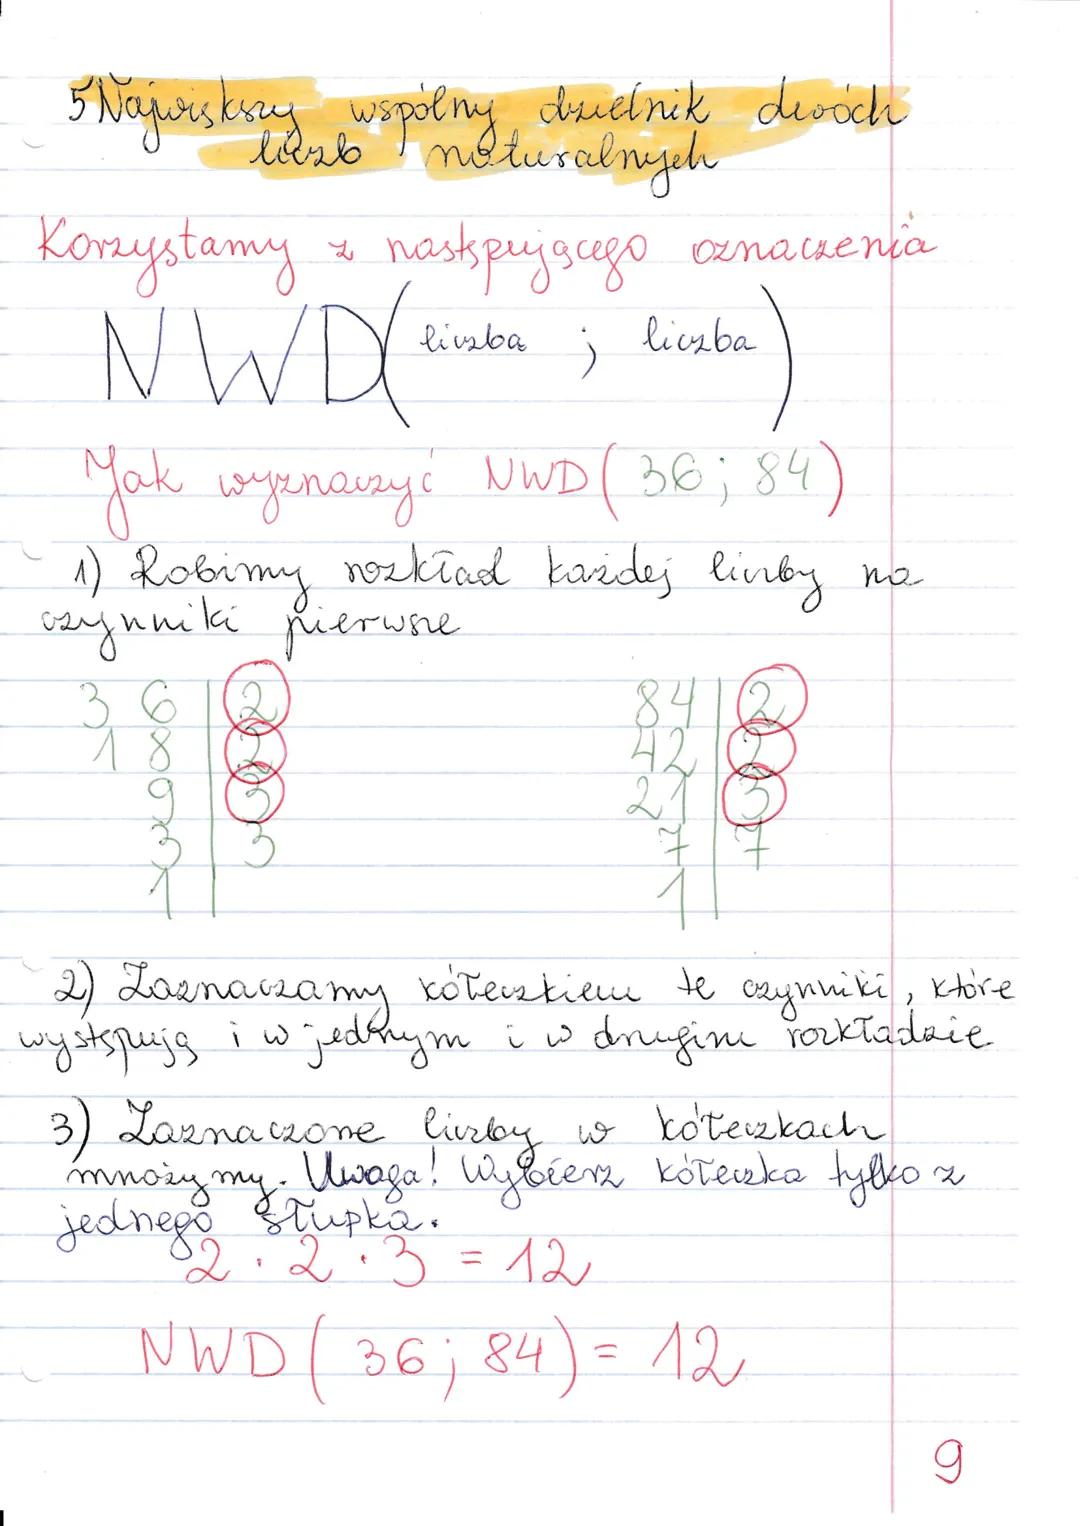 5 Największy wspólny dzielnik dwóch
liczb naturalnych
Korzystamy z następującego oznaczenia
NWD( liczba ; liczba )
Jak wyznaczyć NWD( 36 ; 84 )
1) Robimy rozkład każdej liczby na
czynniki pierwsze
36 | 2    84 | 2
18 | 2    42 | 2
9 | 3    21 | 3
3 | 3    7 | 7
1 |    1 |
2) Zaznaczamy kółeczkiem te czynniki, które
występują i w jednym i w drugim rozkładzie
3) Zaznaczone liczby w kółeczkach
mnożymy. Uwaga! Wybierz kółeczka tylko z
jednego słupka.
2 · 2 · 3 = 12
NWD( 36 ; 84 ) = 12
9